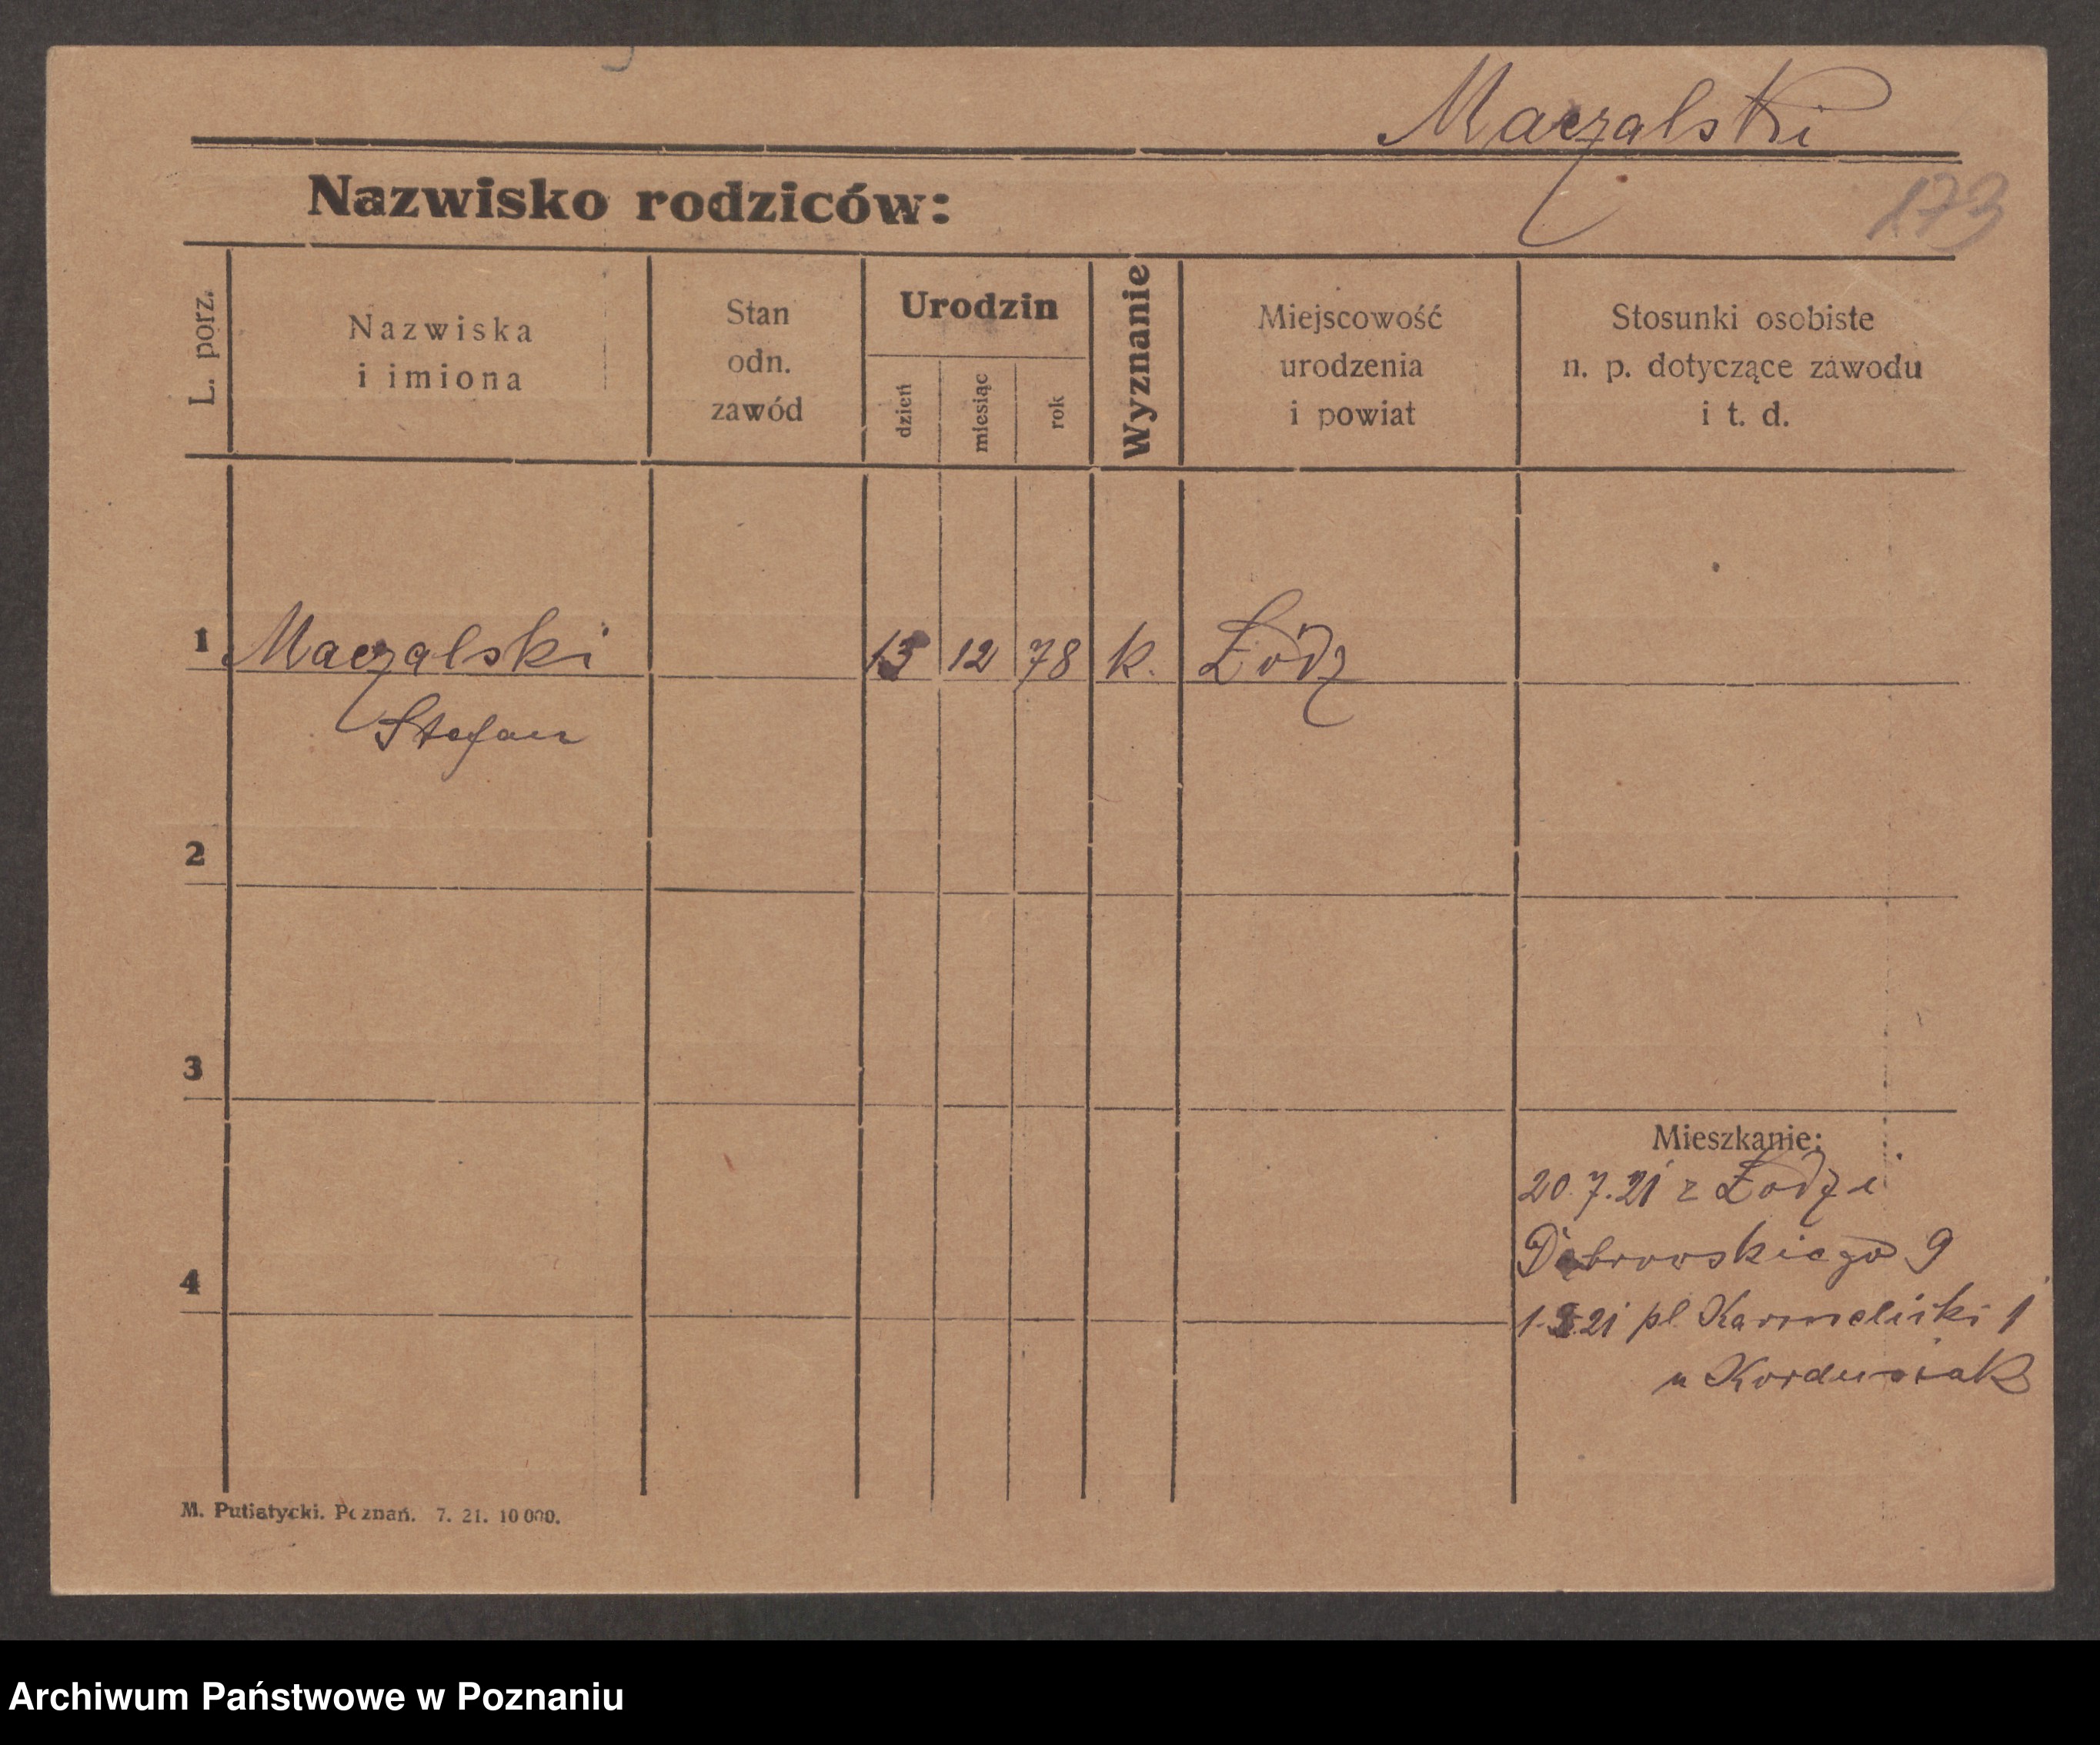 Maczalski
Nazwisko rodziców:
173
L. porz.
Nazwiska
i imiona
Stan
odn.
zawód
Urodzin
dzień
miesiąc
rok
Wyznanie
Miejscowość
urodzenia
i powiat
Stosunki osobiste
n. p. dotyczące zawodu
i t. d.
1 Maczalski 13 12 78 k. Łódź
Stefan
2
3
Mieszkanie:
20.7.21 z Łodzi
Dąbrowskiego 9
4
21 pl Karmelicki 1
u Kordusiak
M. Putiatycki. Poznań. 7. 21. 10 000.
Archiwum Państwowe w Poznaniu